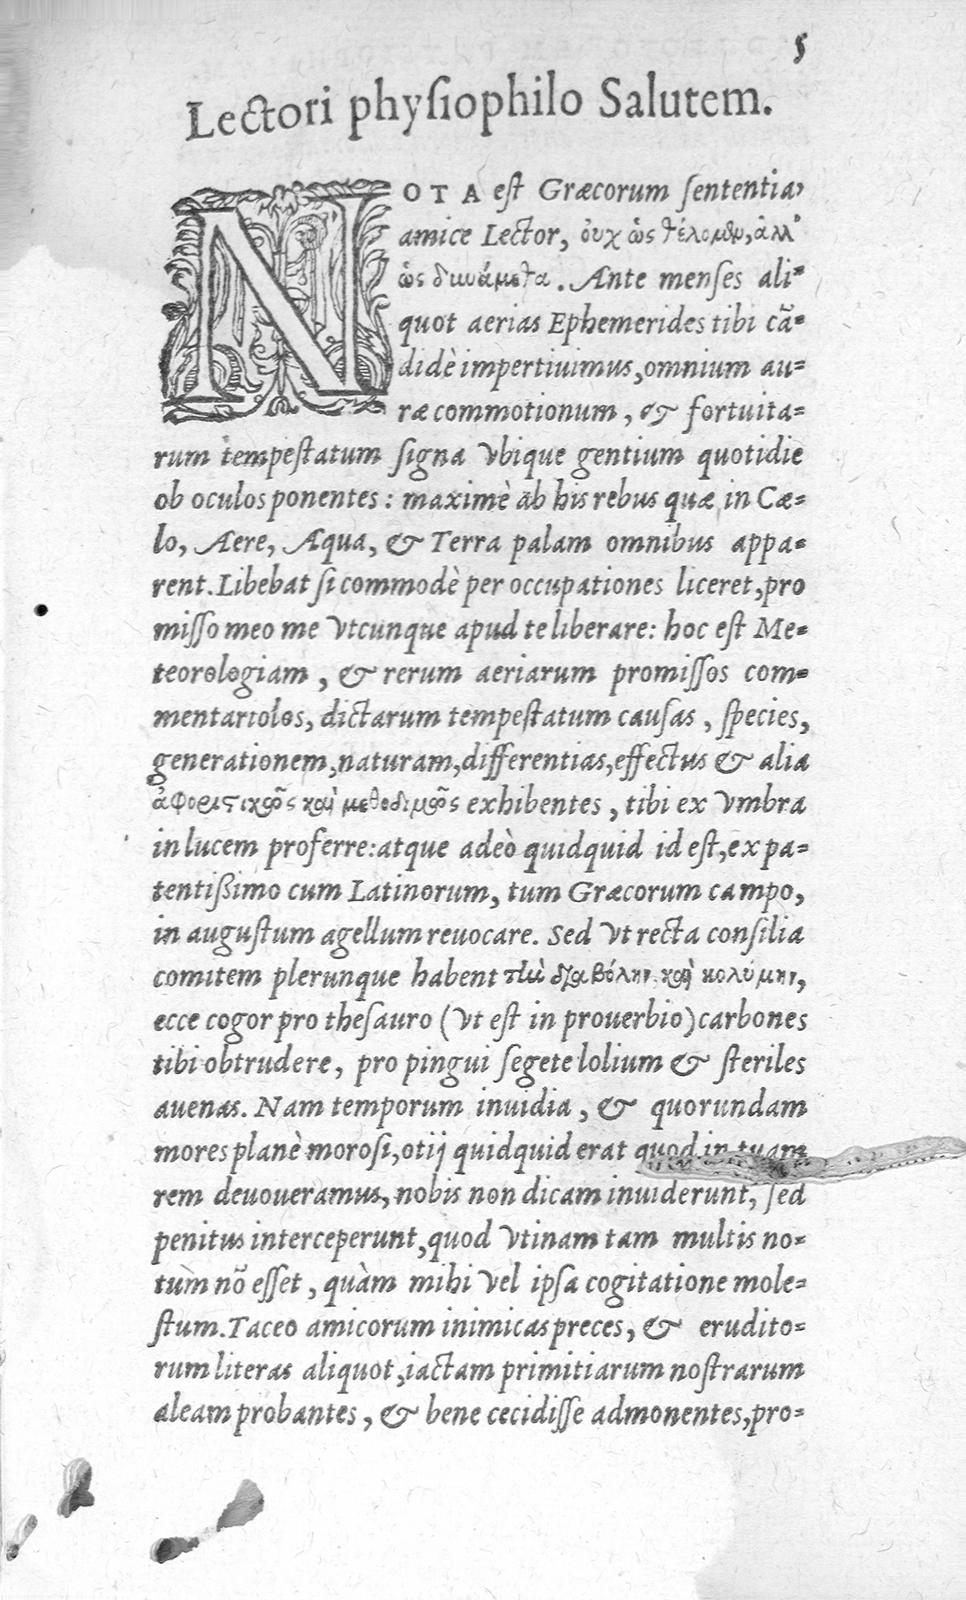 5
Lectori physiophilo Salutem.
NOTA est Græcorum sententia,
amice Lector, οὐχ ὡς θέλομεν, ἀλλ'
ὡς δυνάμεθα. Ante menses ali=
quot aerias Ephemerides tibi cã=
didè impertiuimus, omnium au=
ræ commotionum, & fortuita=
rum tempestatum signa vbique gentium quotidie
ob oculos ponentes: maximè ab his rebus quæ in Cæ=
lo, Aere, Aqua, & Terra palam omnibus appa=
rent. Libebat si commodè per occupationes liceret, pro
misso meo me vtcunque apud te liberare: hoc est Me=
teorologiam, & rerum aeriarum promissos com=
mentariolos, dictarum tempestatum causas, species,
generationem, naturam, differentias, effectus & alia
ἀφοριστικῶς καὶ μεθοδικῶς exhibentes, tibi ex vmbra
in lucem proferre: atque adeò quidquid id est, ex pa=
tentißimo cum Latinorum, tum Græcorum campo,
in augustum agellum reuocare. Sed vt recta consilia
comitem plerunque habent τὴν διαβόλην καὶ κολύμην,
ecce cogor pro thesauro (vt est in prouerbio) carbones
tibi obtrudere, pro pingui segete lolium & steriles
auenas. Nam temporum inuidia, & quorundam
mores planè morosi, otij quidquid erat quod in tuam
rem deuoueramus, nobis non dicam inuiderunt, sed
penitus interceperunt, quod vtinam tam multis no=
tùm nõ esset, quàm mihi vel ipsa cogitatione mole=
stum. Taceo amicorum inimicas preces, & erudito=
rum literas aliquot, iactam primitiarum nostrarum
aleam probantes, & bene cecidisse admonentes, pro=